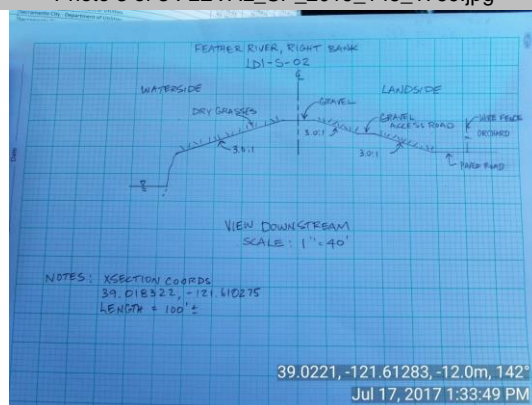 FEATHER RIVER, RIGHT BANK
LD1-S-02
WATERSIDE
LANDSIDE
DRY GRASSES
GRAVEL
GRAVEL
ACCESS ROAD
WIRE FENCE
ORCHARD
3.0:1
3.0:1
PAVED ROAD
VIEW DOWNSTREAM
SCALE: 1"=40'
NOTES: XSECTION COORDS
39.018322, -121.610275
LENGTH = 100'±
39.0221, -121.61283, -12.0m, 142°
Jul 17, 2017 1:33:49 PM